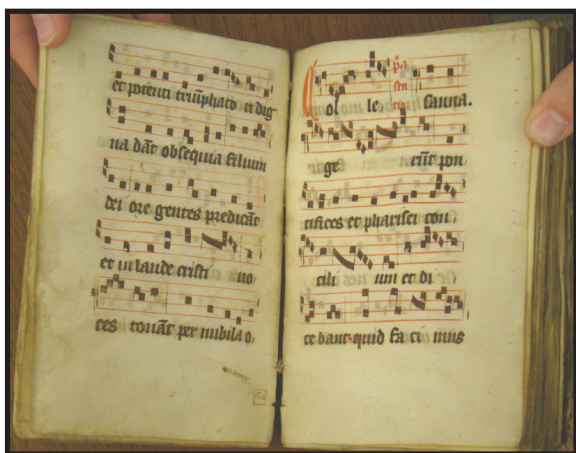 et potenti triũphato ri dig
na dãt obsequia filium
dei ore gentes predicãt
et in laude cristi uo
ces tonãt per nubila o
Col le sanna.
ge rũt pon
tifices et pharisei con
cili um et di
ce bant quid fa ci mus